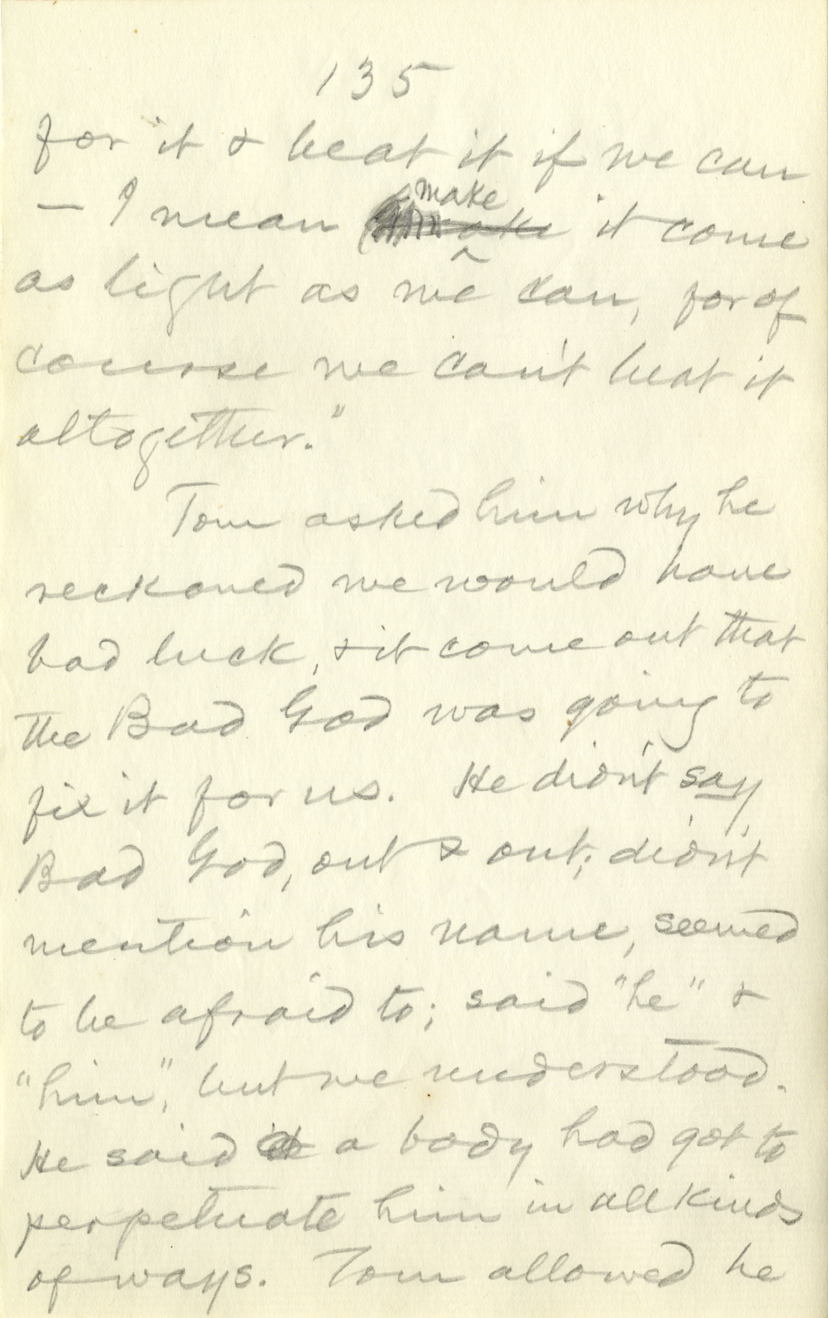 135
for it & beat it if we can
— I mean make it come
as light as we can, for of
course we can't beat it
altogether."
Tom asked him why he
reckoned we would have
bad luck, & it come out that
the Bad God was going to
fix it for us. He didn't say
Bad God, out & out; didn't
mention his name, seemed
to be afraid to; said "he" &
"him," but we understood.
He said a body had got to
perpetuate him in all kinds
of ways. Tom allowed he